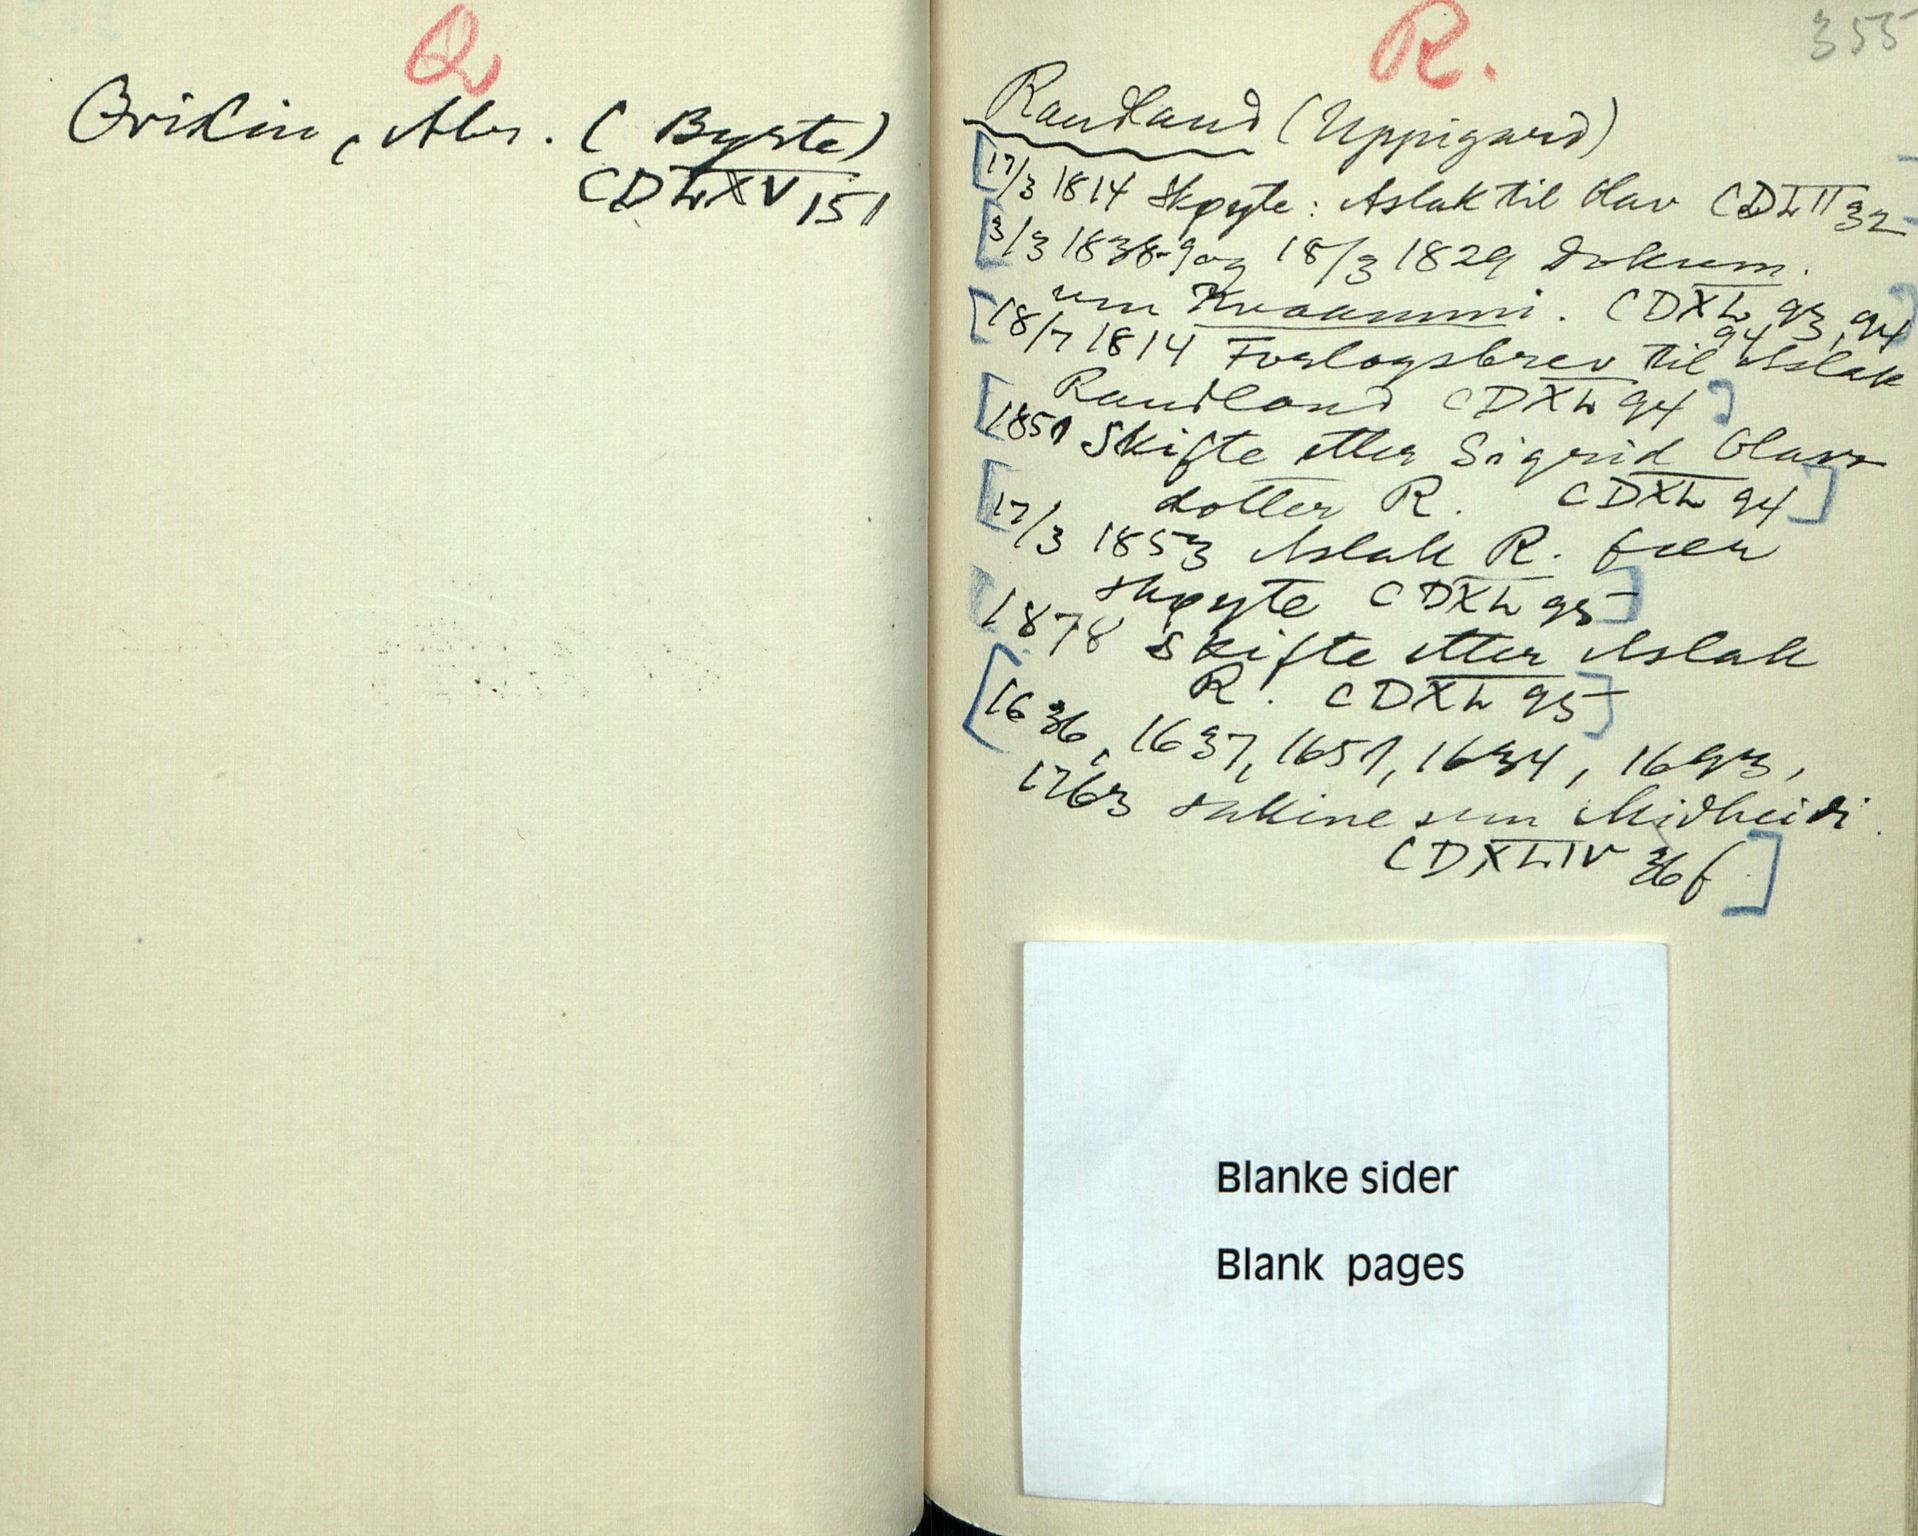 Q
Qvislin, Abr. (Byrte)
CDLXV 151
R.
355
Raudland (Uppigard)
[17/3 1814 Skøyte: Aslak til Olav CDLII 32]
[3/3 1838 og 18/3 1829 Dokum.
um Kvaammi. CDXL 93, 94]
[18/7 1814 Forlogsbrev til Aslak
Raudland CDXL 94]
[1851 Skifte etter Sigrid Olavs
dotter R. CDXL 94]
[17/3 1853 Aslak R. fær
skøyte CDXL 95]
[1878 Skifte etter Aslak
R. CDXL 95]
[1636, 1637, 1651, 1634, 1693,
1763 sakine um Midheidi.
CDXLIV 36f]
Blanke sider
Blank pages